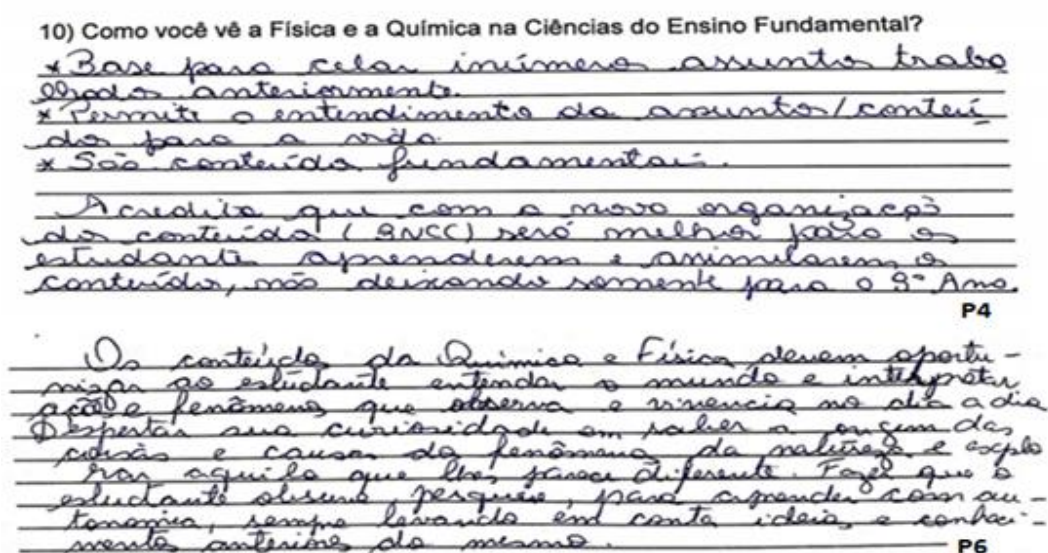 10) Como você vê a Física e a Química na Ciências do Ensino Fundamental?
* Base para inúmeros assuntos traba
lhados anteriormente.
* Permite o entendimento de assuntos/conteú
dos para a vida
* São conteúdos fundamentais.
Acredito que com a nova organização
dos conteúdos (BNCC) será melhor para os
estudantes aprenderem e assimilarem os
conteúdos, não deixando somente para o 9º Ano.
P4
Os conteúdos da Química e Física devem oportu-
nizar ao estudante entender o mundo e interpretar
ações e fenômenos que observa e vivencia no dia a dia
Despertar sua curiosidade em saber a origem das
coisas e causas dos fenômenos da natureza e explo
rar aquilo que lhes parece diferente. Fazer que o
estudante observe, pesquise, para aprender com au-
tonomia, sempre levando em conta ideias e conheci-
mentos anteriores do mesmo.
P6